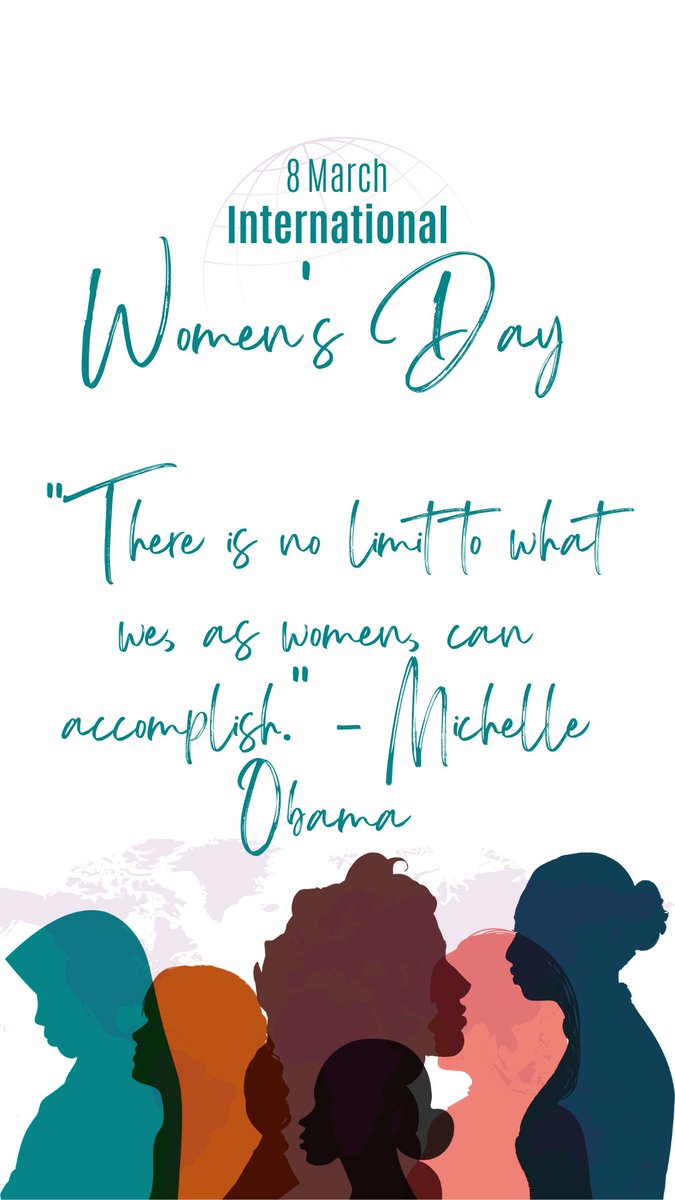 8 March
International
Women's Day
"There is no limit to what
we, as women, can
accomplish." - Michelle
Obama